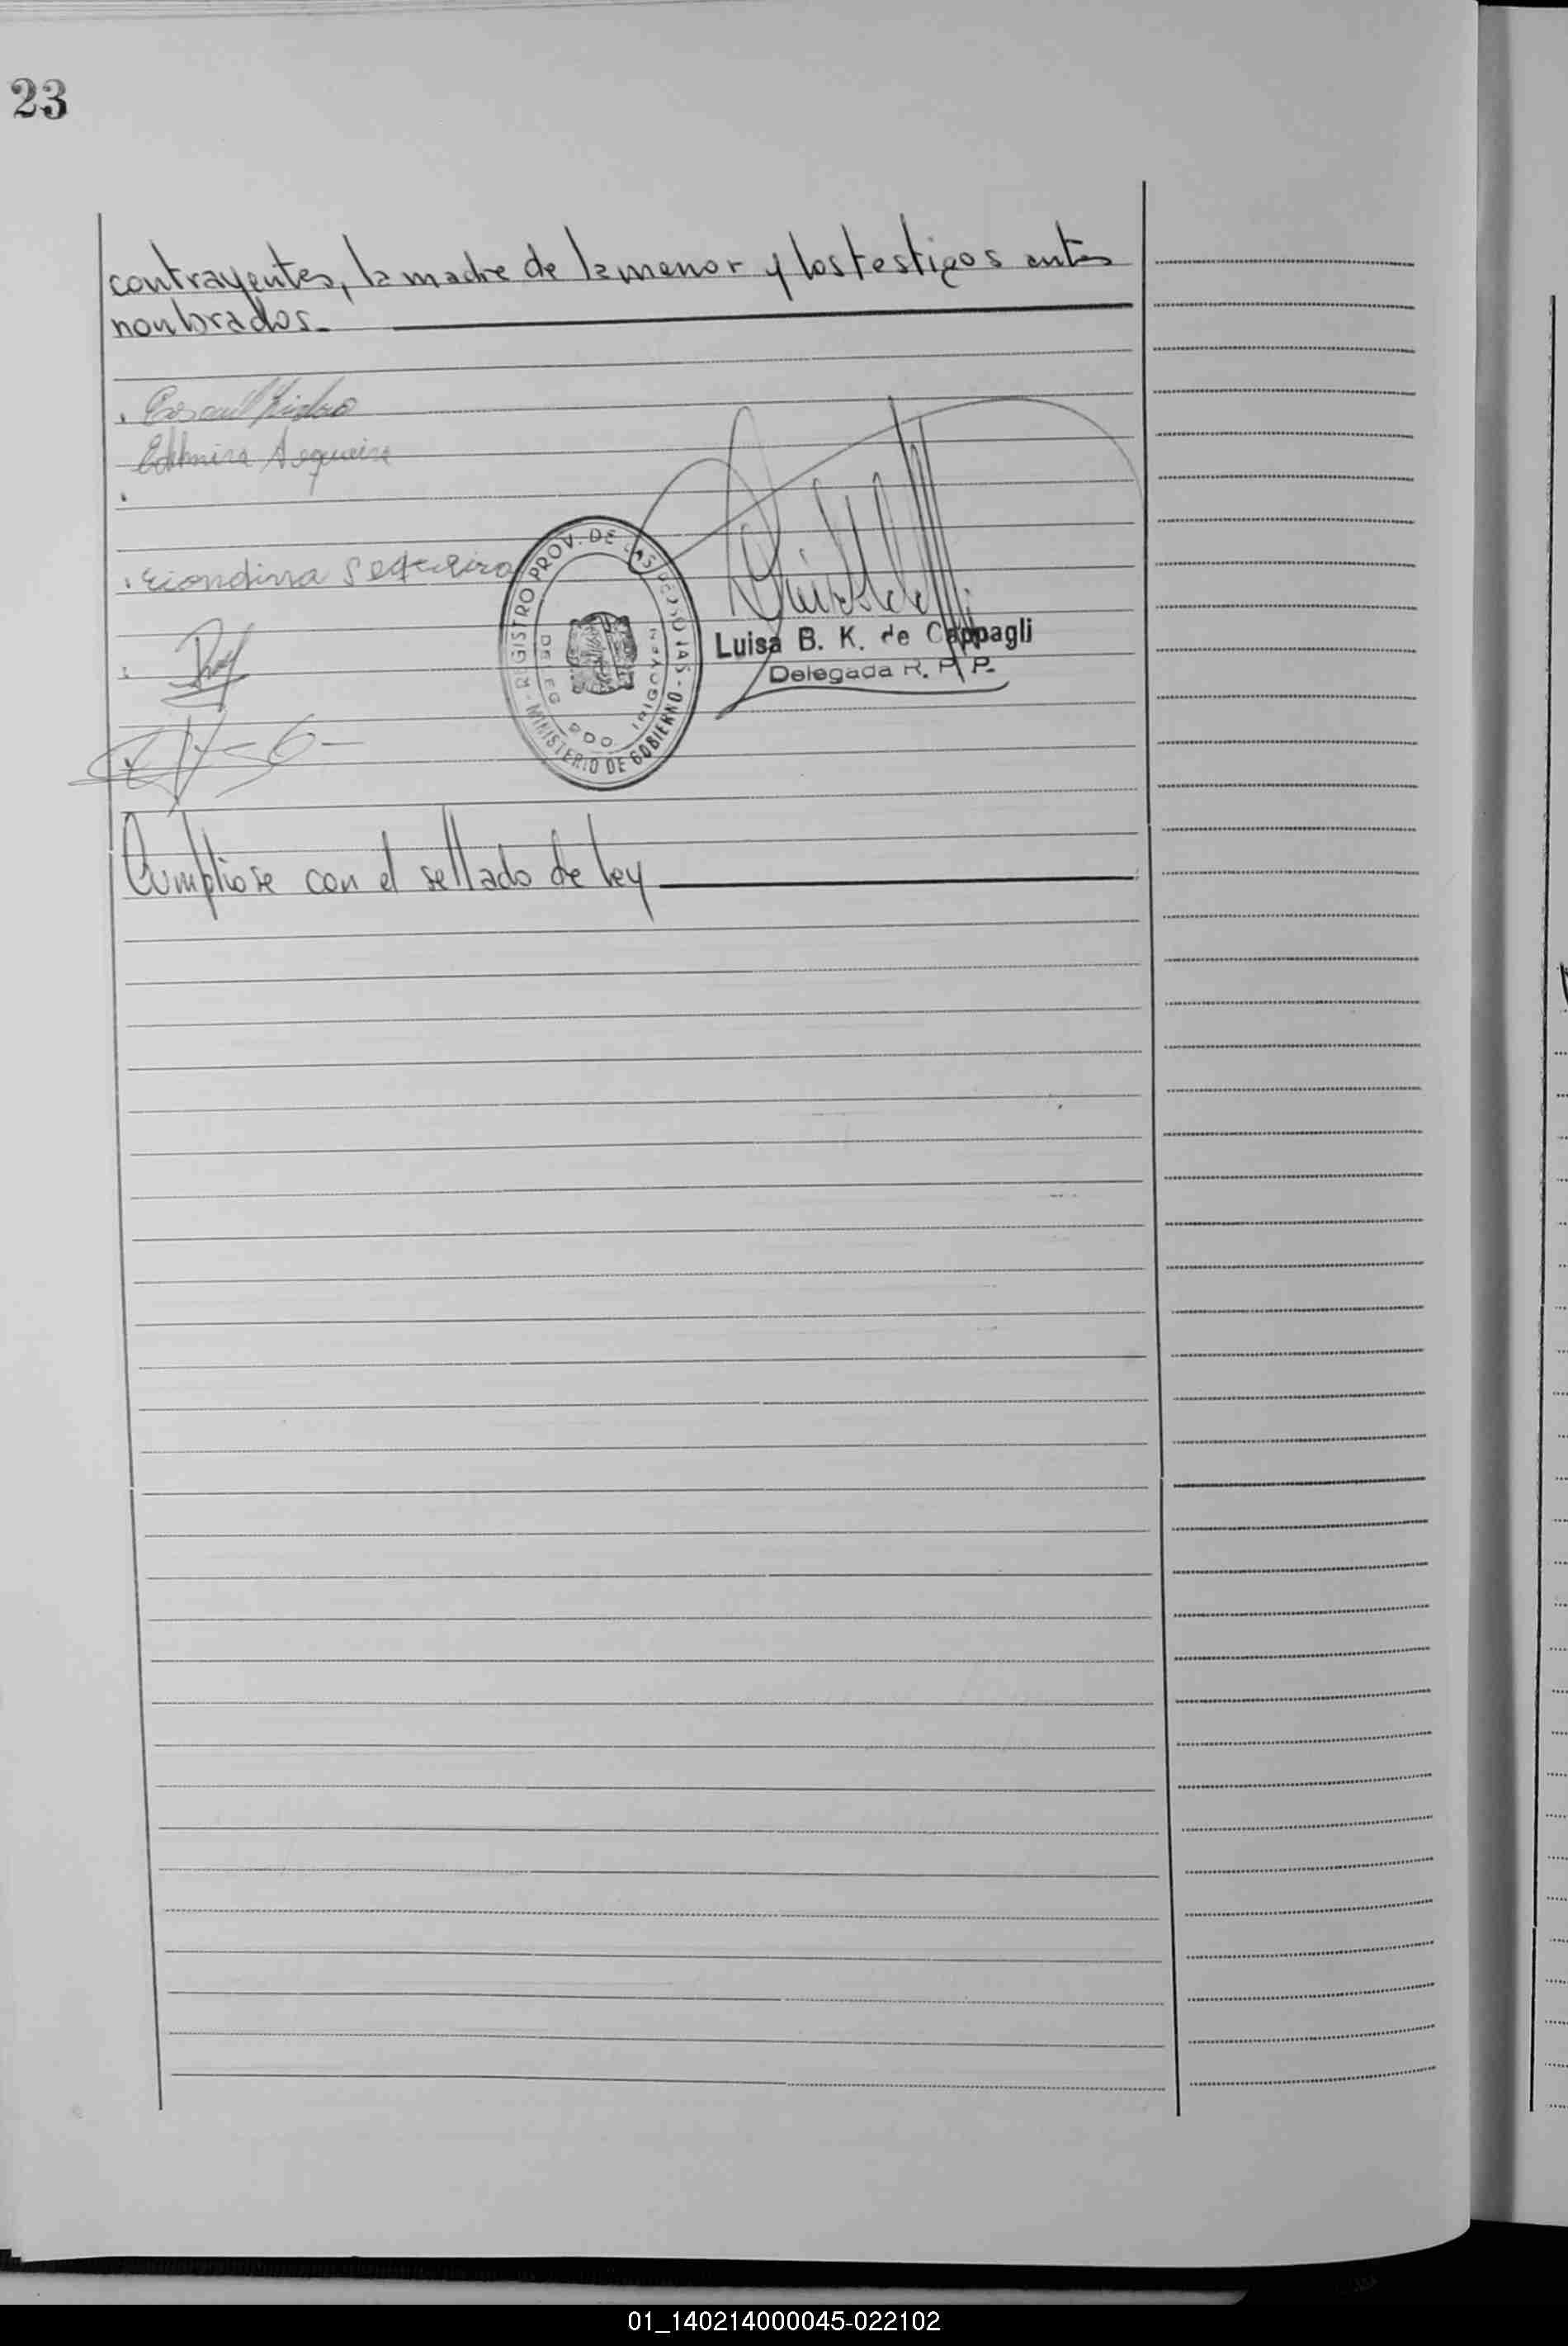 23
contrayentes, la madre de la menor y los testigos antes
nombrados.
Sequeira
Sequeira
REGISTRO PROV. DE LAS PERSONAS - MINISTERIO DE GOBIERNO -
BDO. IRIGOYEN
Luisa B. K. de Cappagli
Delegada R. P. P.
Cumpliose con el sellado de ley
01_140214000045-022102